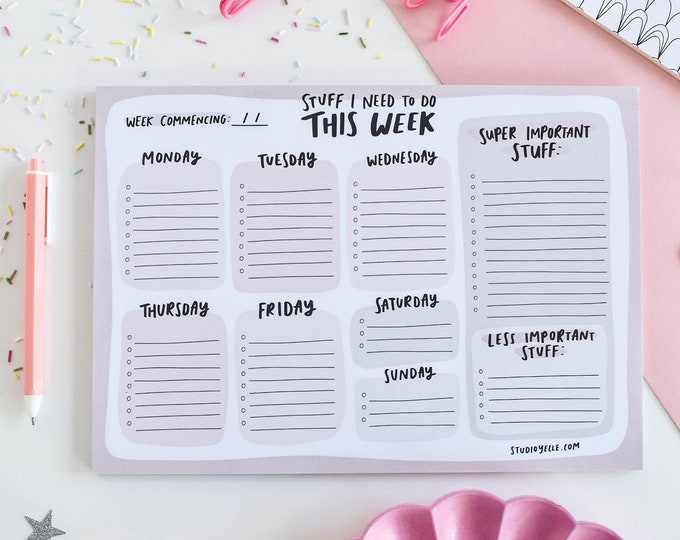 STUFF I NEED TO DO
THIS WEEK
WEEK COMMENCING: / /
MONDAY
TUESDAY
WEDNESDAY
THURSDAY
FRIDAY
SATURDAY
SUNDAY
SUPER IMPORTANT
STUFF:
LESS IMPORTANT
STUFF:
STUDIOYELLE.COM